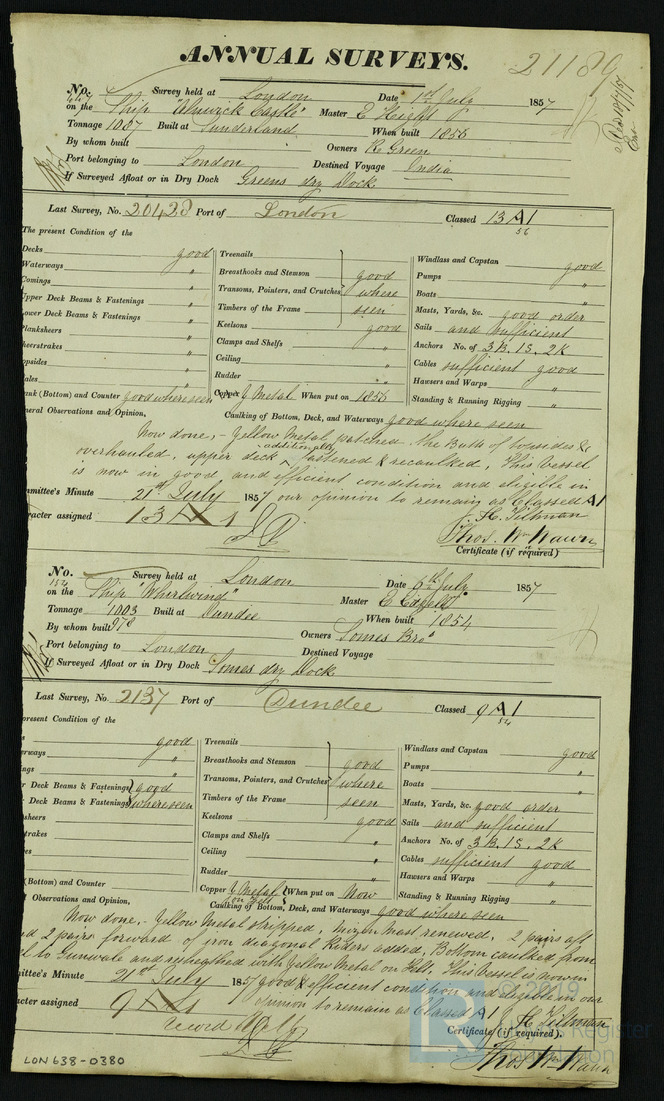 ANNUAL SURVEYS.
21189
No. Survey held at London Date 1st July 1857
on the Ship "Alnwick Castle" Master E Hight
Tonnage 1087 Built at Sunderland When built 1856
By whom built Owners R Green
Port belonging to London Destined Voyage India
If Surveyed Afloat or in Dry Dock Greens dry Dock
Last Survey, No. 20428 Port of London Classed 13 A1
56
The present Condition of the
Decks good
Waterways "
Comings "
Upper Deck Beams & Fastenings "
Lower Deck Beams & Fastenings "
Planksheers "
heerstrakes "
opsides "
ales "
ank (Bottom) and Counter good where seen
Treenails
Breasthooks and Stemson good
Transoms, Pointers, and Crutches where
Timbers of the Frame seen
Keelsons good
Clamps and Shelfs "
Ceiling "
Rudder "
Copper Y Metal When put on 1856
Windlass and Capstan good
Pumps "
Boats "
Masts, Yards, &c. good order
Sails and sufficient
Anchors No. of 3B. 1S. 2K
Cables sufficient good
Hawsers and Warps "
Standing & Running Rigging "
neral Observations and Opinion, Caulking of Bottom, Deck, and Waterways good where seen
Now done,- Yellow Metal patched the Butts of topsides &c
overhauled, upper deck additionally fastened & recaulked, This Vessel
is now in good and efficient condition and eligible in
mmittee's Minute 21st July 1857 our opinion to remain as Classed A1
racter assigned 13 A 1
J. H. Tilman
Thos. Wm Wawn
Certificate (if required)
No. Survey held at London Date 6th July 1857
on the Ship "Whirlwind" Master E
Tonnage 1003 Built at Dundee When built 1854
By whom built 978 Owners Somes Bros
Port belonging to London Destined Voyage
If Surveyed Afloat or in Dry Dock Somes dry Dock
Last Survey, No. 2137 Port of Dundee Classed 9 A1
54
present Condition of the
s good
rways "
ngs "
r Deck Beams & Fastenings good
Deck Beams & Fastenings where seen
sheers
trakes
es
(Bottom) and Counter
Treenails
Breasthooks and Stemson good
Transoms, Pointers, and Crutches where
Timbers of the Frame seen
Keelsons good
Clamps and Shelfs "
Ceiling
Rudder "
Copper Y Metal on Felt When put on Now
Windlass and Capstan good
Pumps "
Boats "
Masts, Yards, &c. good order
Sails and sufficient
Anchors No. of 3B. 1S. 2K
Cables sufficient good
Hawsers and Warps "
Standing & Running Rigging "
Observations and Opinion, Caulking of Bottom, Deck, and Waterways good where seen
Now done,- Yellow Metal stripped, Mizen Mast renewed, 2 pairs aft
2 pairs forward of iron diagonal Riders added, Bottom caulked from
to Gunwale and resheathed with Yellow Metal on Felt. This Vessel is now in
ittee's Minute 21st July 1857 good & efficient condition and eligible in our
acter assigned 9 A 1 opinion to remain as Classed A1
J. H. Tilman
Certificate (if required).
Thos Wm Wawn
LON638-0380
© 2019
Lloyd's Register
Foundation